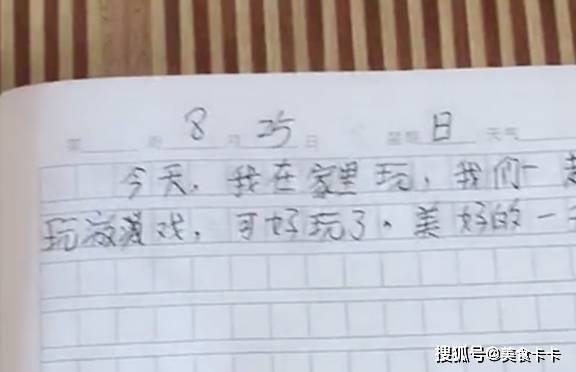 8月25日 星期日 天气
今天，我在家里玩，我们一起
玩游戏，可好玩了。美好的一
搜狐号@美食卡卡